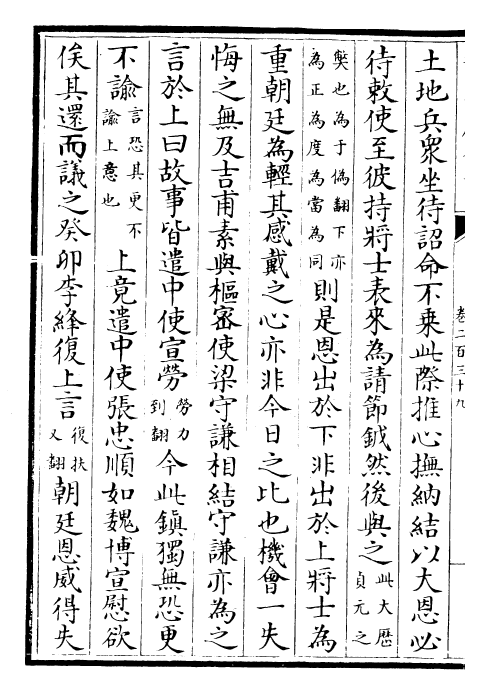 土地兵衆坐待詔命不乗此際推心撫納結以大恩必
待敕使至彼持將士表來為請節鉞然後與之此大歴貞元之
弊也為于偽翻下亦為正為度為當為同則是恩出於下非出於上將士為
重朝廷為輕其感戴之心亦非今日之比也機會一失
悔之無及吉甫素與樞密使梁守謙相結守謙亦為之
言於上曰故事皆遣中使宣勞勞力到翻今此鎮獨無恐更
不諭言恐其更不諭上意也上竟遣中使張忠順如魏博宣慰欲
俟其還而議之癸卯李絳復上言復扶又翻朝廷恩威得失
卷二百三十九